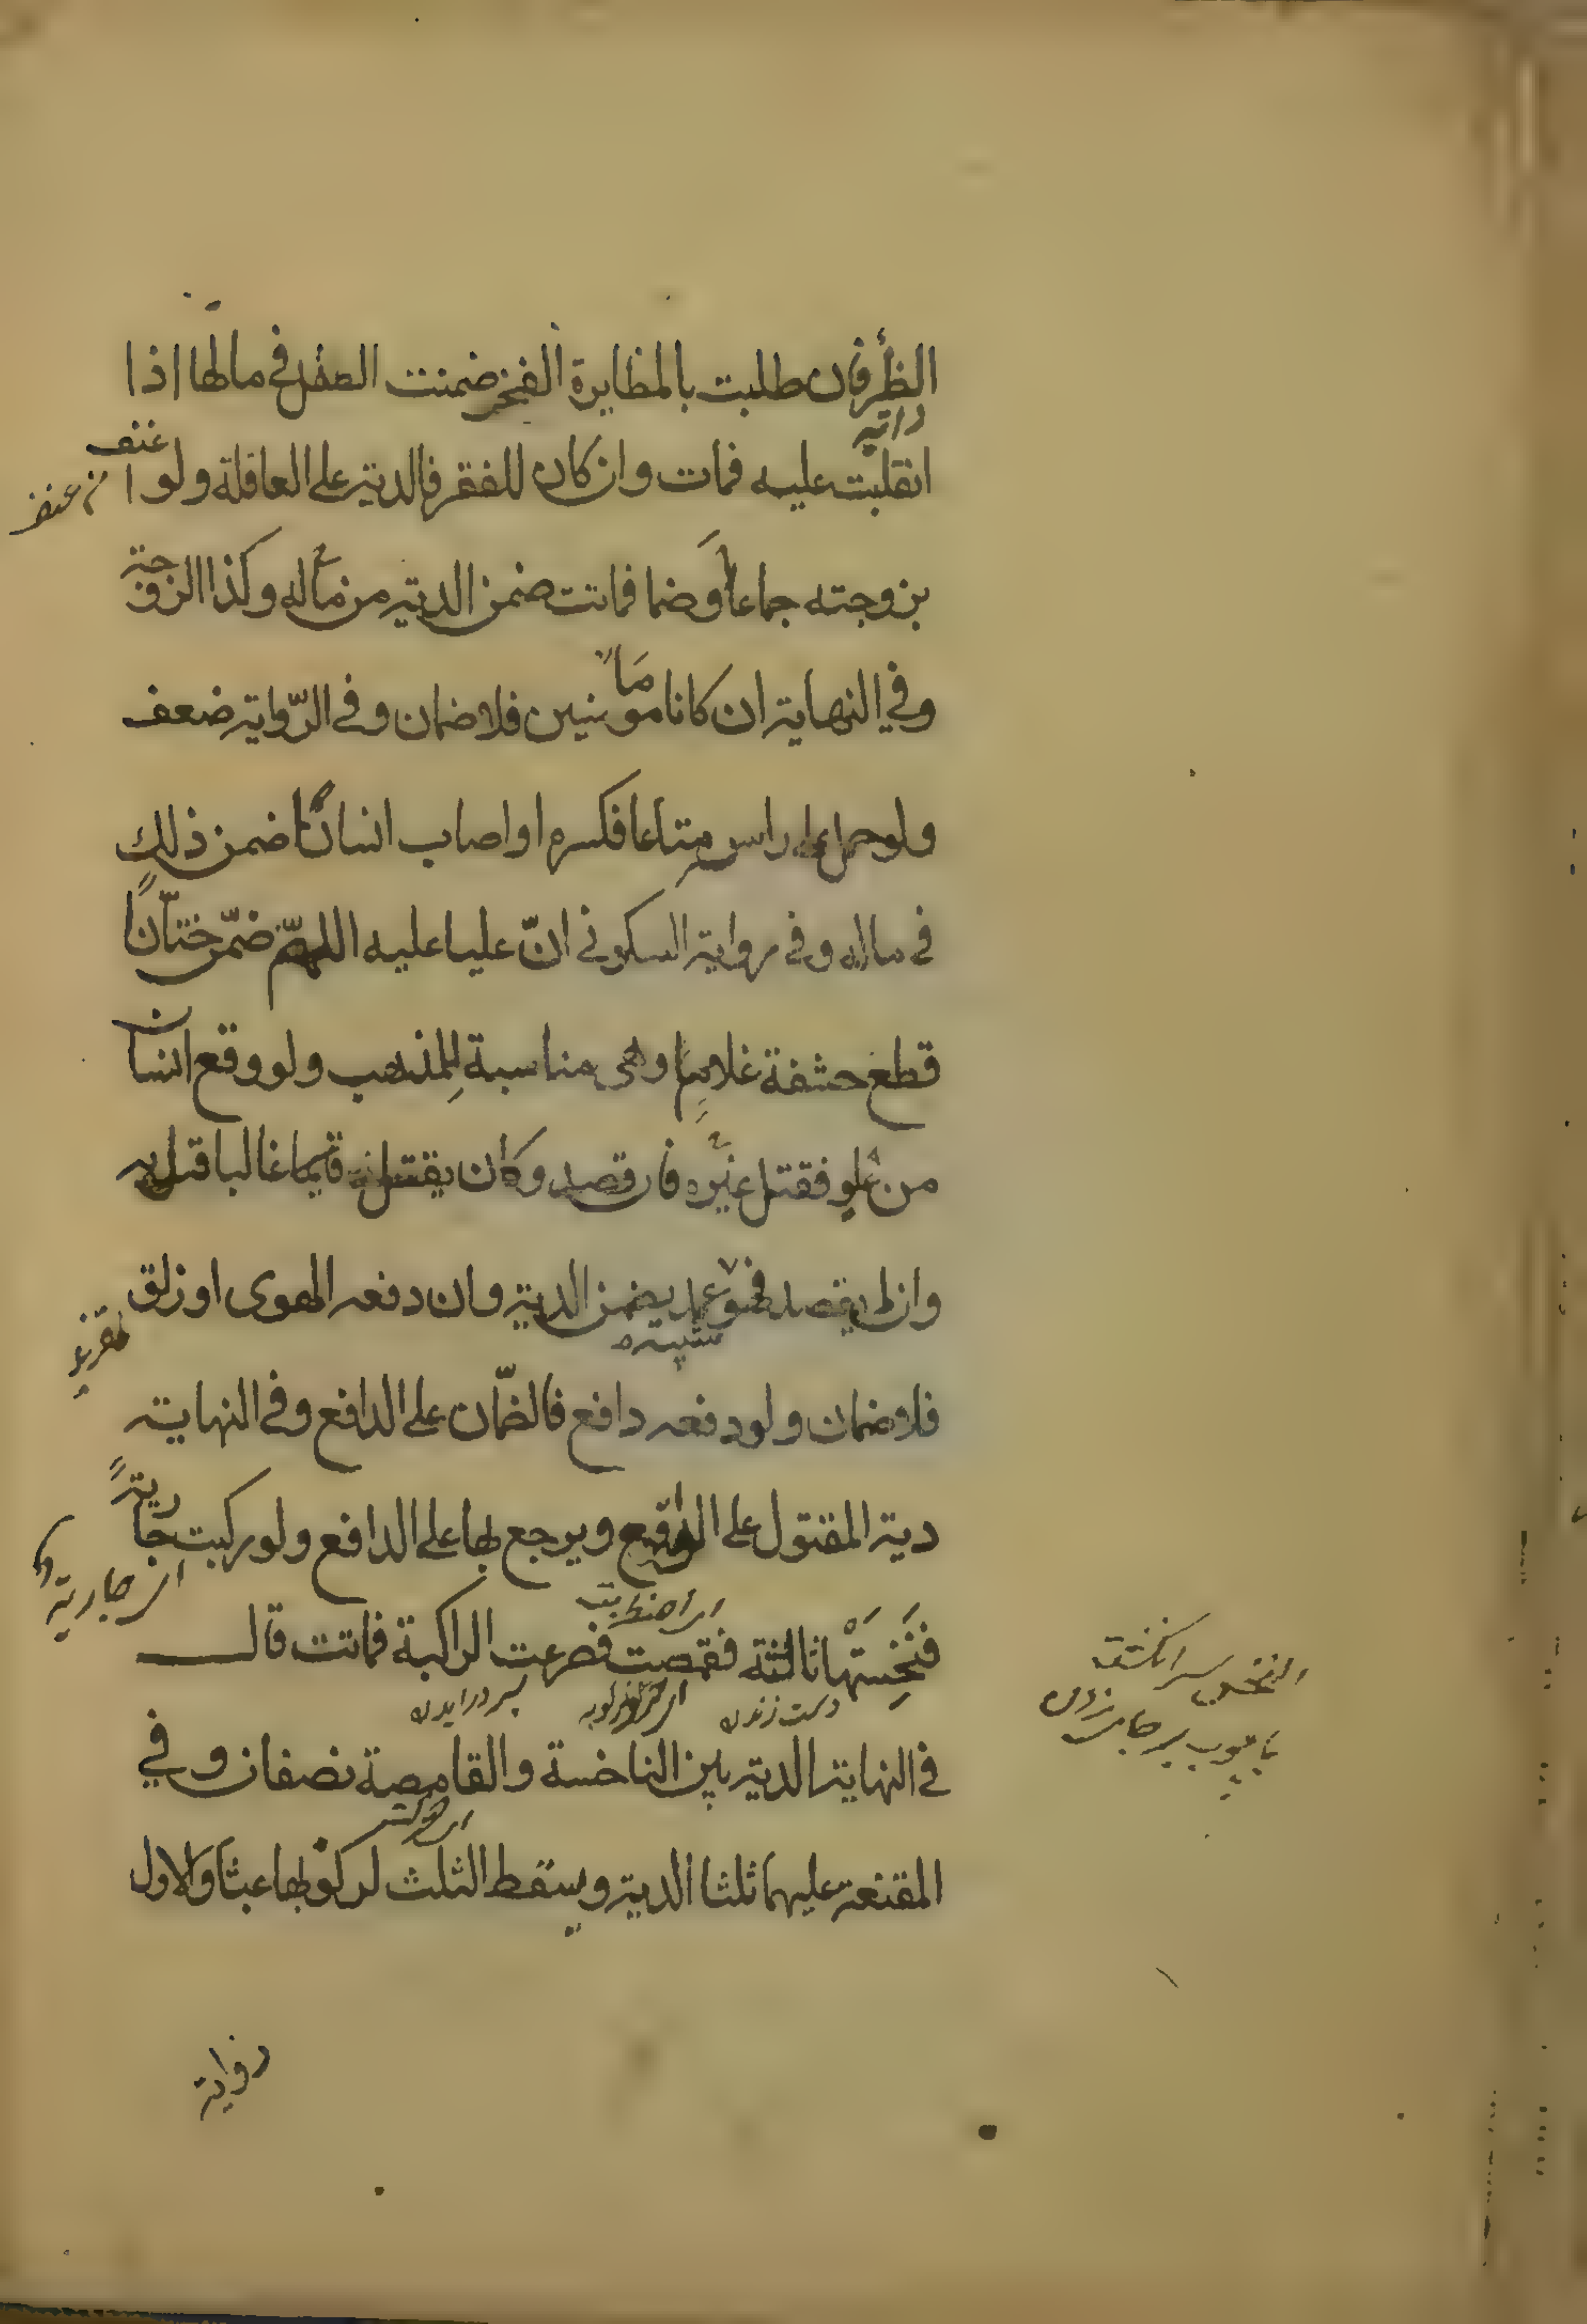 الظئر فان طلبت بالمظايرة الفخر ضمنت الطفل في مالها اذا
انقلبت عليه فمات وان كان للفقر فالدية على العاقلة ولو اعنف
بزوجته جماعا او ضما فماتت ضمن الدية من ماله وكذا الزوجة
وفي النهاية ان كانا مامونين فلا ضمان وفي الرّواية ضعف
ولو حمل على راسه متاعا فكسره او اصاب انسانًا ضمن ذلك
في ماله وفي رواية السكوني انّ عليا عليه اللهمّ ضمّن ختّانًا
قطع حشفة غلام وهي مناسبة للمذهب ولو وقع انسان
من علو فقتل غيره فان قصد وكان يقتل غالبا قتل به
وان لم يقصد فهو عمد يضمن الدية وان دفعه الهوى او زلق
شبيه
فلا ضمان ولو دفعه دافع فالضمّان على الدافع وفي النهاية
دية المقتول على الواقع ويرجع بها على الدافع ولو ركبت جارية
جارية
فنَخِسَتْهَا ثالثة فقمصت فصرعت الراكبة فماتت قال
النخس سر انكشت
يا چوب بر جايى زدن
في النهاية الدية بين الناخسة والقامصة نصفان وفي
المقنعة عليهما ثلثا الدية ويسقط الثلث لركوبها عبثا والاول
رواية